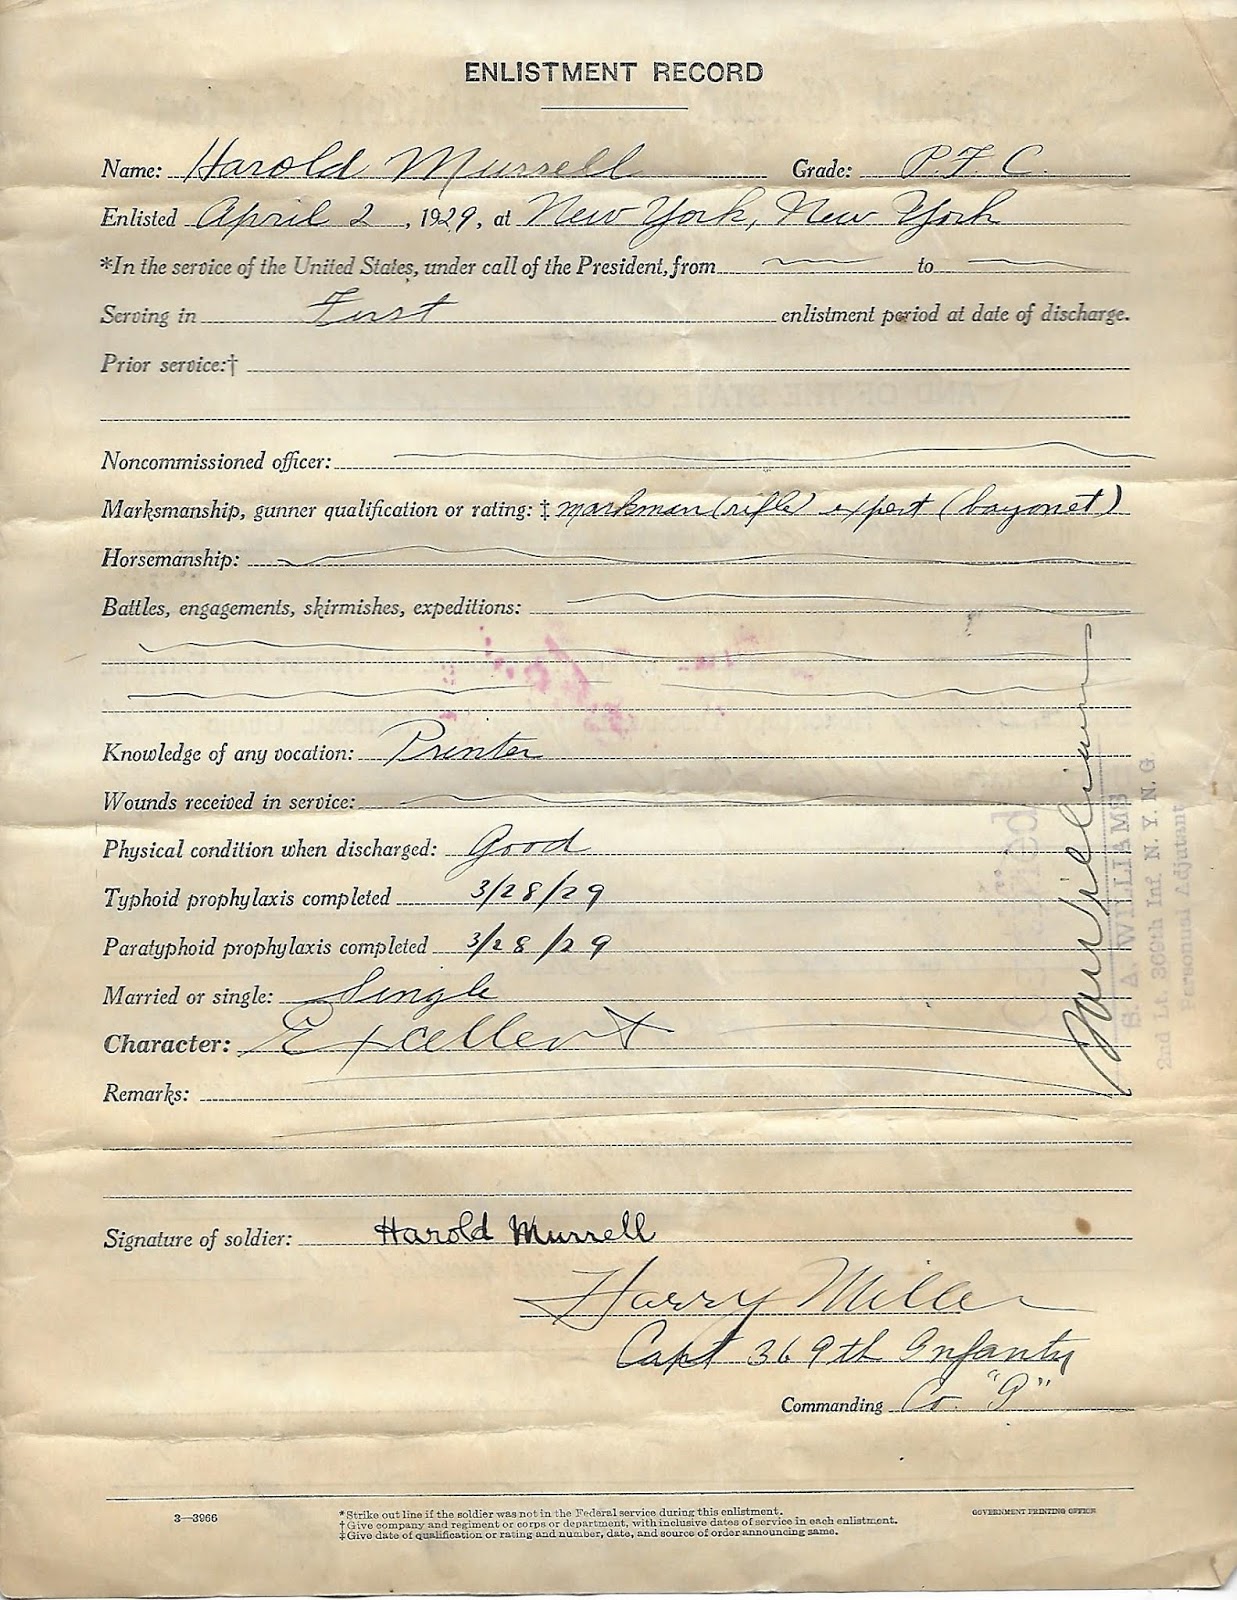 ENLISTMENT RECORD
Name: Harold Murrell Grade: P.F.C.
Enlisted April 2, 1929, at New York, New York
*In the service of the United States, under call of the President, from to
Serving in First enlistment period at date of discharge.
Prior service:†
Noncommissioned officer:
Marksmanship, gunner qualification or rating: ‡ markman (rifle) expert (bayonet)
Horsemanship:
Battles, engagements, skirmishes, expeditions:
Knowledge of any vocation: Printer
Wounds received in service:
Physical condition when discharged: Good
Typhoid prophylaxis completed 3/28/29
Paratyphoid prophylaxis completed 3/28/29
Married or single: Single
Character: Excellent
Remarks:
Signature of soldier: Harold Murrell
Harry Miller
Capt 369th Infantry
Commanding Co.
S. A. WILLIAMS
2nd Lt. 369th Inf. N. Y. N. G.
Personual Adjutant
3—3966
*Strike out line if the soldier was not in the Federal service during this enlistment.
†Give company and regiment or corps or department, with inclusive dates of service in each enlistment.
‡Give date of qualification or rating and number, date, and source of order announcing same.
GOVERNMENT PRINTING OFFICE